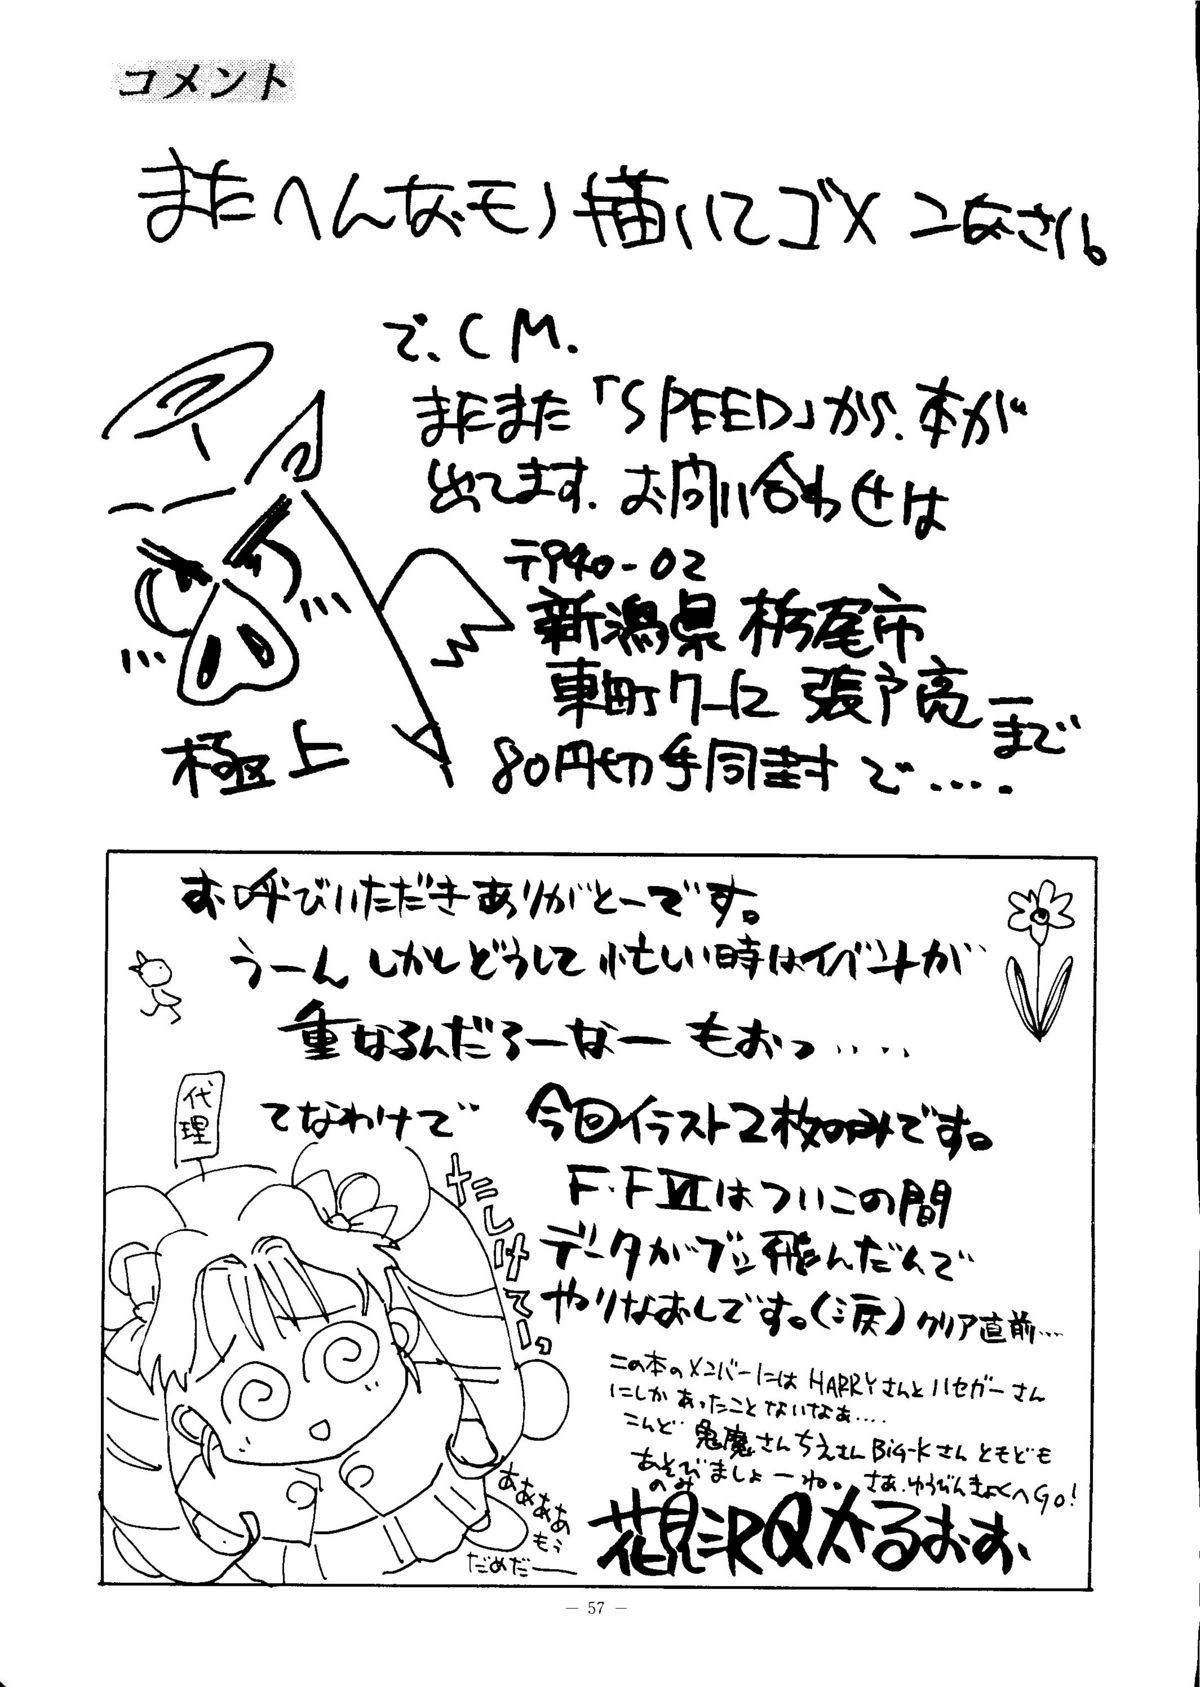 コメント
またへんなモノ描いてゴメンなさい。
で、CM.
またまた「SPEED」から、本が
出てます。お問い合わせは
〒940-02
新潟県 栃尾市
東町7-12 張戸亮一まで
80円切手同封で‥‥
極上
お呼びいただきありがとーです。
うーん しかしどうして 忙しい時はイベントが
重なるんだろーなー もおっ‥‥
てなわけで 今回イラスト2枚のみです。
代理
F・FⅥはついこの間
データがブッ飛んだんで
やりなおしです。(涙) クリア直前…
たしけてーっ
この本のメンバーには HARRYさんとハセガーさん
にしか あったことないなぁ‥‥
こんど 鬼魔さんちえさん BiG-Kさん ともども
のみ
あそびましょーね。 さあ、ゆうびんきょくへGO!
ああああ
もぅ
だめだー
花見沢Q太るおお、
— 57 —